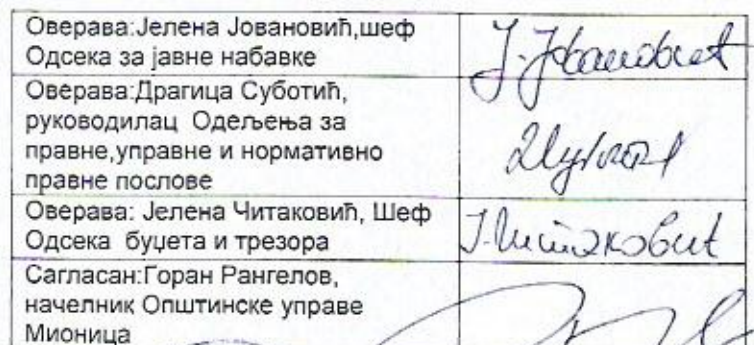 Оверава:Јелена Јовановић,шеф
Одсека за јавне набавке
Ј. Јовановић
Оверава:Драгица Суботић,
руководилац Одељења за
правне,управне и нормативно
правне послове
Оверава: Јелена Читаковић, Шеф
Одсека буџета и трезора
Ј. Читаковић
Сагласан:Горан Рангелов,
начелник Општинске управе
Мионица